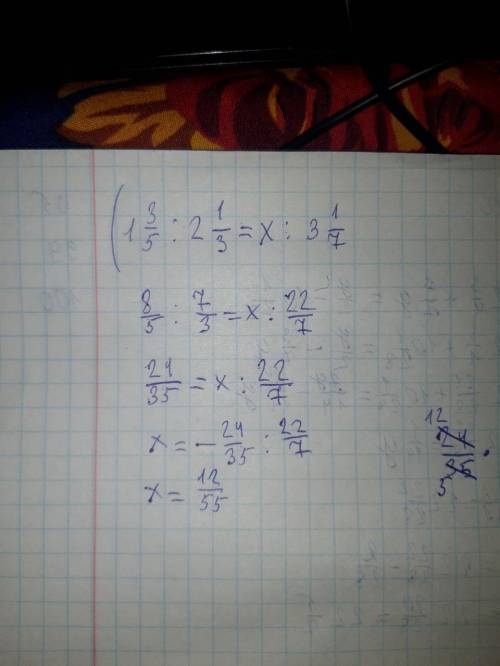 ( 1 3/5 : 2 1/3 = x : 3 1/7
8/5 : 7/3 = x : 22/7
24/35 = x : 22/7
x = - 24/35 : 22/7
x = 12/55